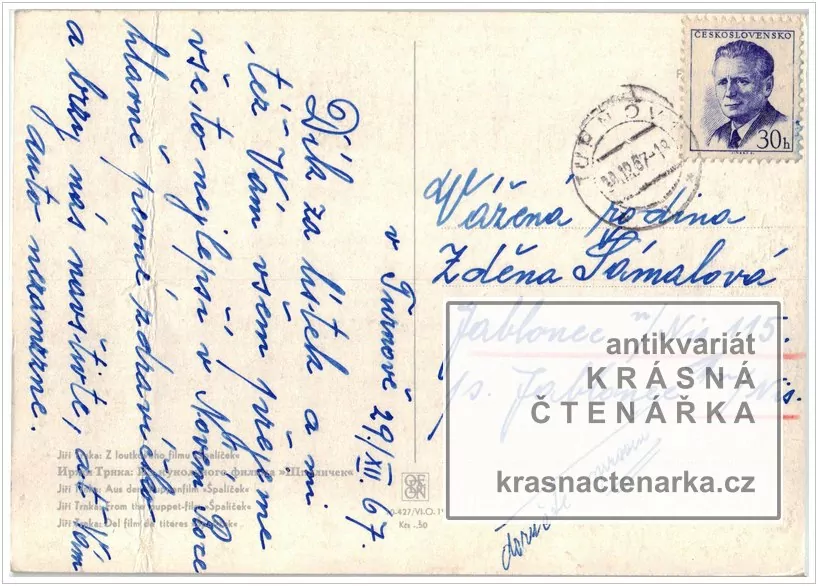 ČESKOSLOVENSKO
30h
TURNOV
v Turnově 29./XII. 67.
Dík za lístek a mi
též Vám všem přejeme
vše to nejlepší v Novém Roce
hlavně pevné zdravíčko
a brzy nás navštivte, ať Vám
auto nezamrzne.
Vážená rodina
Zděna Šámalová
Jablonec n/Nis 115
p. Jablonec n/Nis.
antikvariát
KRÁSNÁ
ČTENÁŘKA
krasnactenarka.cz
Jiří Trnka: Z loutkového filmu »Špalíček«
Иржи Трнка: Из кукольного фильма »Шпаличек«
Jiří Trnka: Aus dem Puppenfilm »Špalíček«
Jiří Trnka: From the puppet-film »Špalíček«
Jiří Trnka: Del film de títeres »Špalíček«
ORBON
Kčs -,50